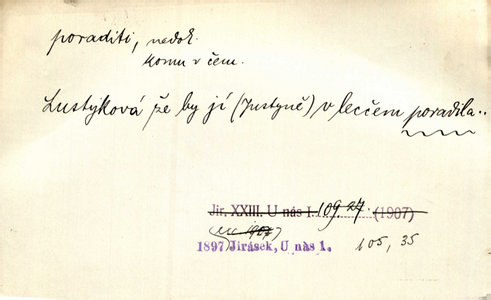 poraditi, nedok.
komu v čem.
Lustyková že by jí (Justyně) v lecčem poradila..
Jir. XXIII. U nás I. 109. 27. (1907)
1897 Jirásek, U nàs 1. 105, 35